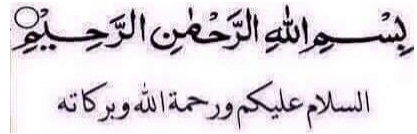 بِسْمِ اللهِ الرَّحْمٰنِ الرَّحِيْمِ
السلام عليكم ورحمة الله وبركاته